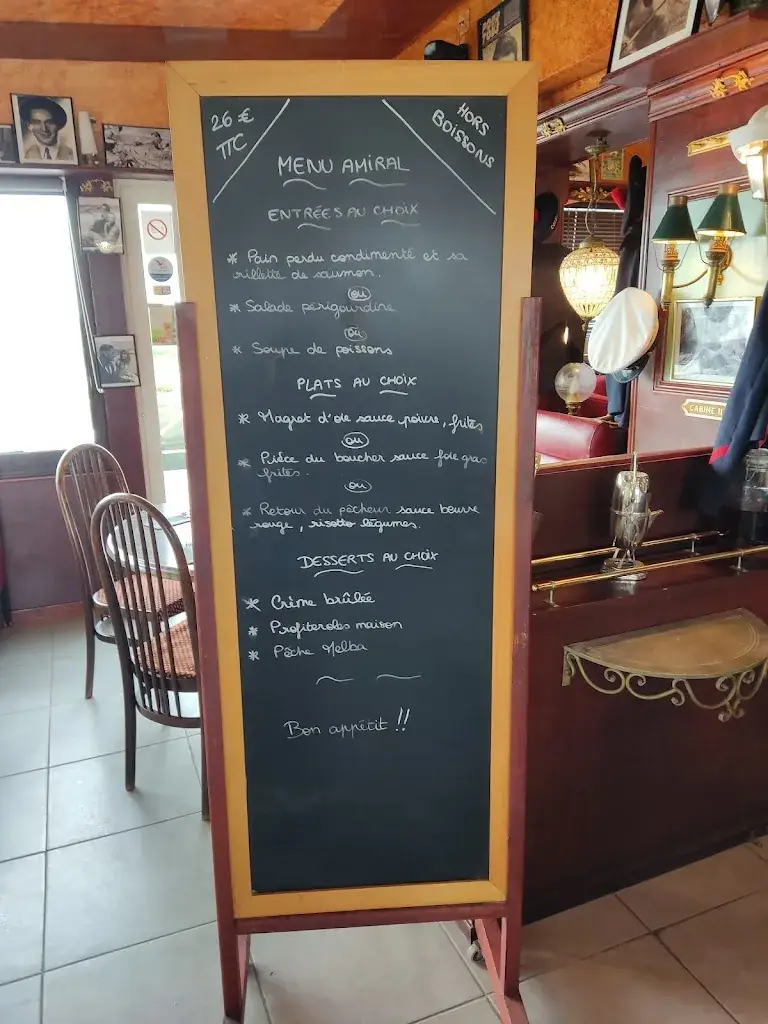 26 €
TTC
HORS
BOISSONS
MENU AMIRAL
ENTRÉES AU CHOIX
* Pain perdu condimenté et sa
rillette de saumon.
ou
* Salade périgourdine
ou
* Soupe de poissons
PLATS AU CHOIX
* Magret d'oie sauce poivre, frites
ou
* Pièce du boucher sauce foie gras
frites.
ou
* Retour du pêcheur sauce beurre
rouge, risotto légumes.
DESSERTS AU CHOIX
* Crème brûlée
* Profiteroles maison
* Pêche Melba
Bon appétit !!
CABINE